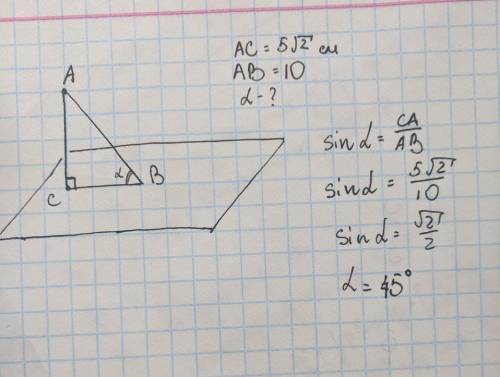 AC = 5√2 см
AB = 10
α - ?
A
α
C
B
sin α = CA/AB
sin α = 5√2/10
sin α = √2/2
α = 45°